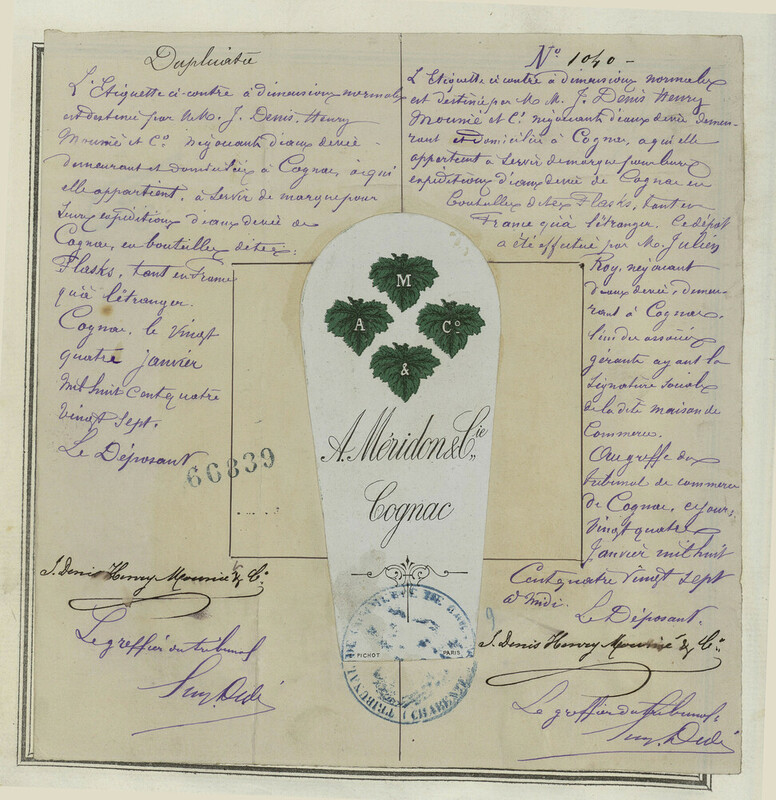 Duplicata
L'Etiquette ci-contre à dimensions normales
est destinée par MM. J. Denis Henry
Mounié et Cº. négociants d'eaux devie
demeurant et domiciliés à Cognac, à qui
elle appartient, à servir de marque pour
leurs expéditions d'eaux devie de
Cognac, en bouteilles dites:
Flasks, tant en France
qu'à l'étranger.
Cognac, le vingt
quatre janvier
mil huit cent quatre
vingt sept.
Le Déposant
66839
J. Denis Henry Mounié & Cº
Le greffier du tribunal
Nº 1040 -
L'Etiquette ci-contre à dimensions normales
est destinée par MM. J. Denis Henry
Mounié et Cº. négociants d'eaux devie demeu-
rant et domiciliés à Cognac, à qui elle
appartient à servir de marque pour leurs
expéditions d'eaux devie de Cognac en
bouteilles dites Flasks, tant en
France qu'à l'étranger. Ce dépôt
a été effectué par M. Julien
Roy, négociant
d'eaux devie, demeu-
rant à Cognac,
l'un des associés
gérants ayant la
signature sociale
de la dite maison de
Commerce.
Au greffe du
tribunal de commerce
de Cognac, ce jour,
vingt quatre
janvier mil huit
Cent quatre vingt sept
à midi.
Le Déposant.
J. Denis Henry Mounié & Cº
Le greffier du tribunal
M
A
Cº
&
A. Méridon & Cie
Cognac
PICHOT
PARIS
TRIBUNAL DE COMMERCE DE COGNAC
CHARENTE
9